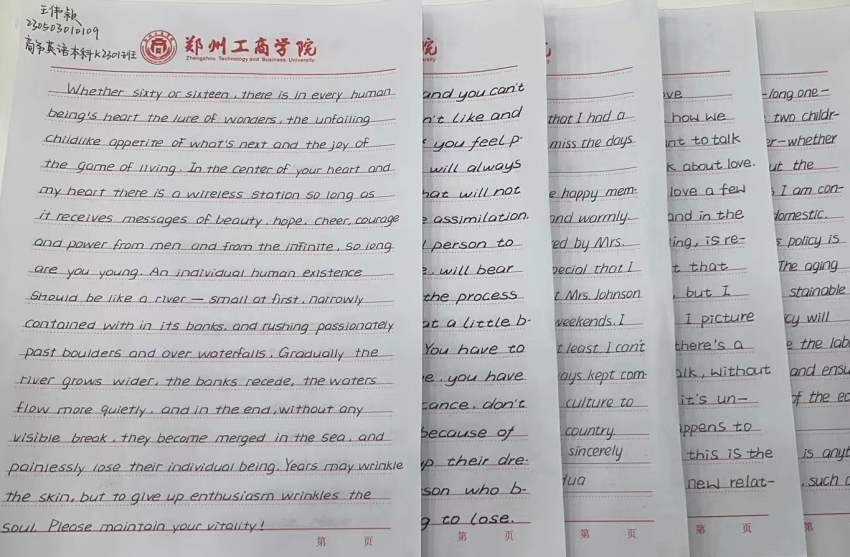 王伟颖
230503010109
商务英语本科K2301班
郑州工商学院
Zhengzhou Technology and Business University
Whether sixty or sixteen, there is in every human
being's heart the lure of wonders, the unfailing
childlike appetite of what's next and the joy of
the game of living. In the center of your heart and
my heart there is a wireless station so long as
it receives messages of beauty, hope, cheer, courage
and power from men and from the infinite, so long
are you young. An individual human existence
should be like a river — small at first, narrowly
contained with in its banks, and rushing passionately
past boulders and over waterfalls. Gradually the
river grows wider, the banks recede, the waters
flow more quietly, and in the end, without any
visible break, they become merged in the sea, and
painlessly lose their individual being. Years may wrinkle
the skin, but to give up enthusiasm wrinkles the
soul. Please maintain your vitality!
第 页
院
and you can't
n't like and
you feel p-
will always
hat will not
assimilation.
person to
, will bear
the process
at a little b-
You have to
e, you have
cance, don't
because of
p their dre-
son who b-
g to lose.
第 页
that I had a
miss the days
e happy mem-
and warmly
ed by Mrs.
pecial that I
t Mrs. Johnson
weekends. I
t least, I can't
ays kept com-
culture to
country
sincerely
Hua
第 页
ve
how we
nt to talk
k about love.
love a few
and in the
ing, is re-
t that
, but I
I picture
there's a
alk, without
it's un-
appens to
this is the
new relat-
第 页
-long one-
two childr-
er-whether
ut the
I am con-
domestic.
s policy is
The aging
stainable
cy will
e the lab
and ensu
of the ec
is anyt
, such a
第